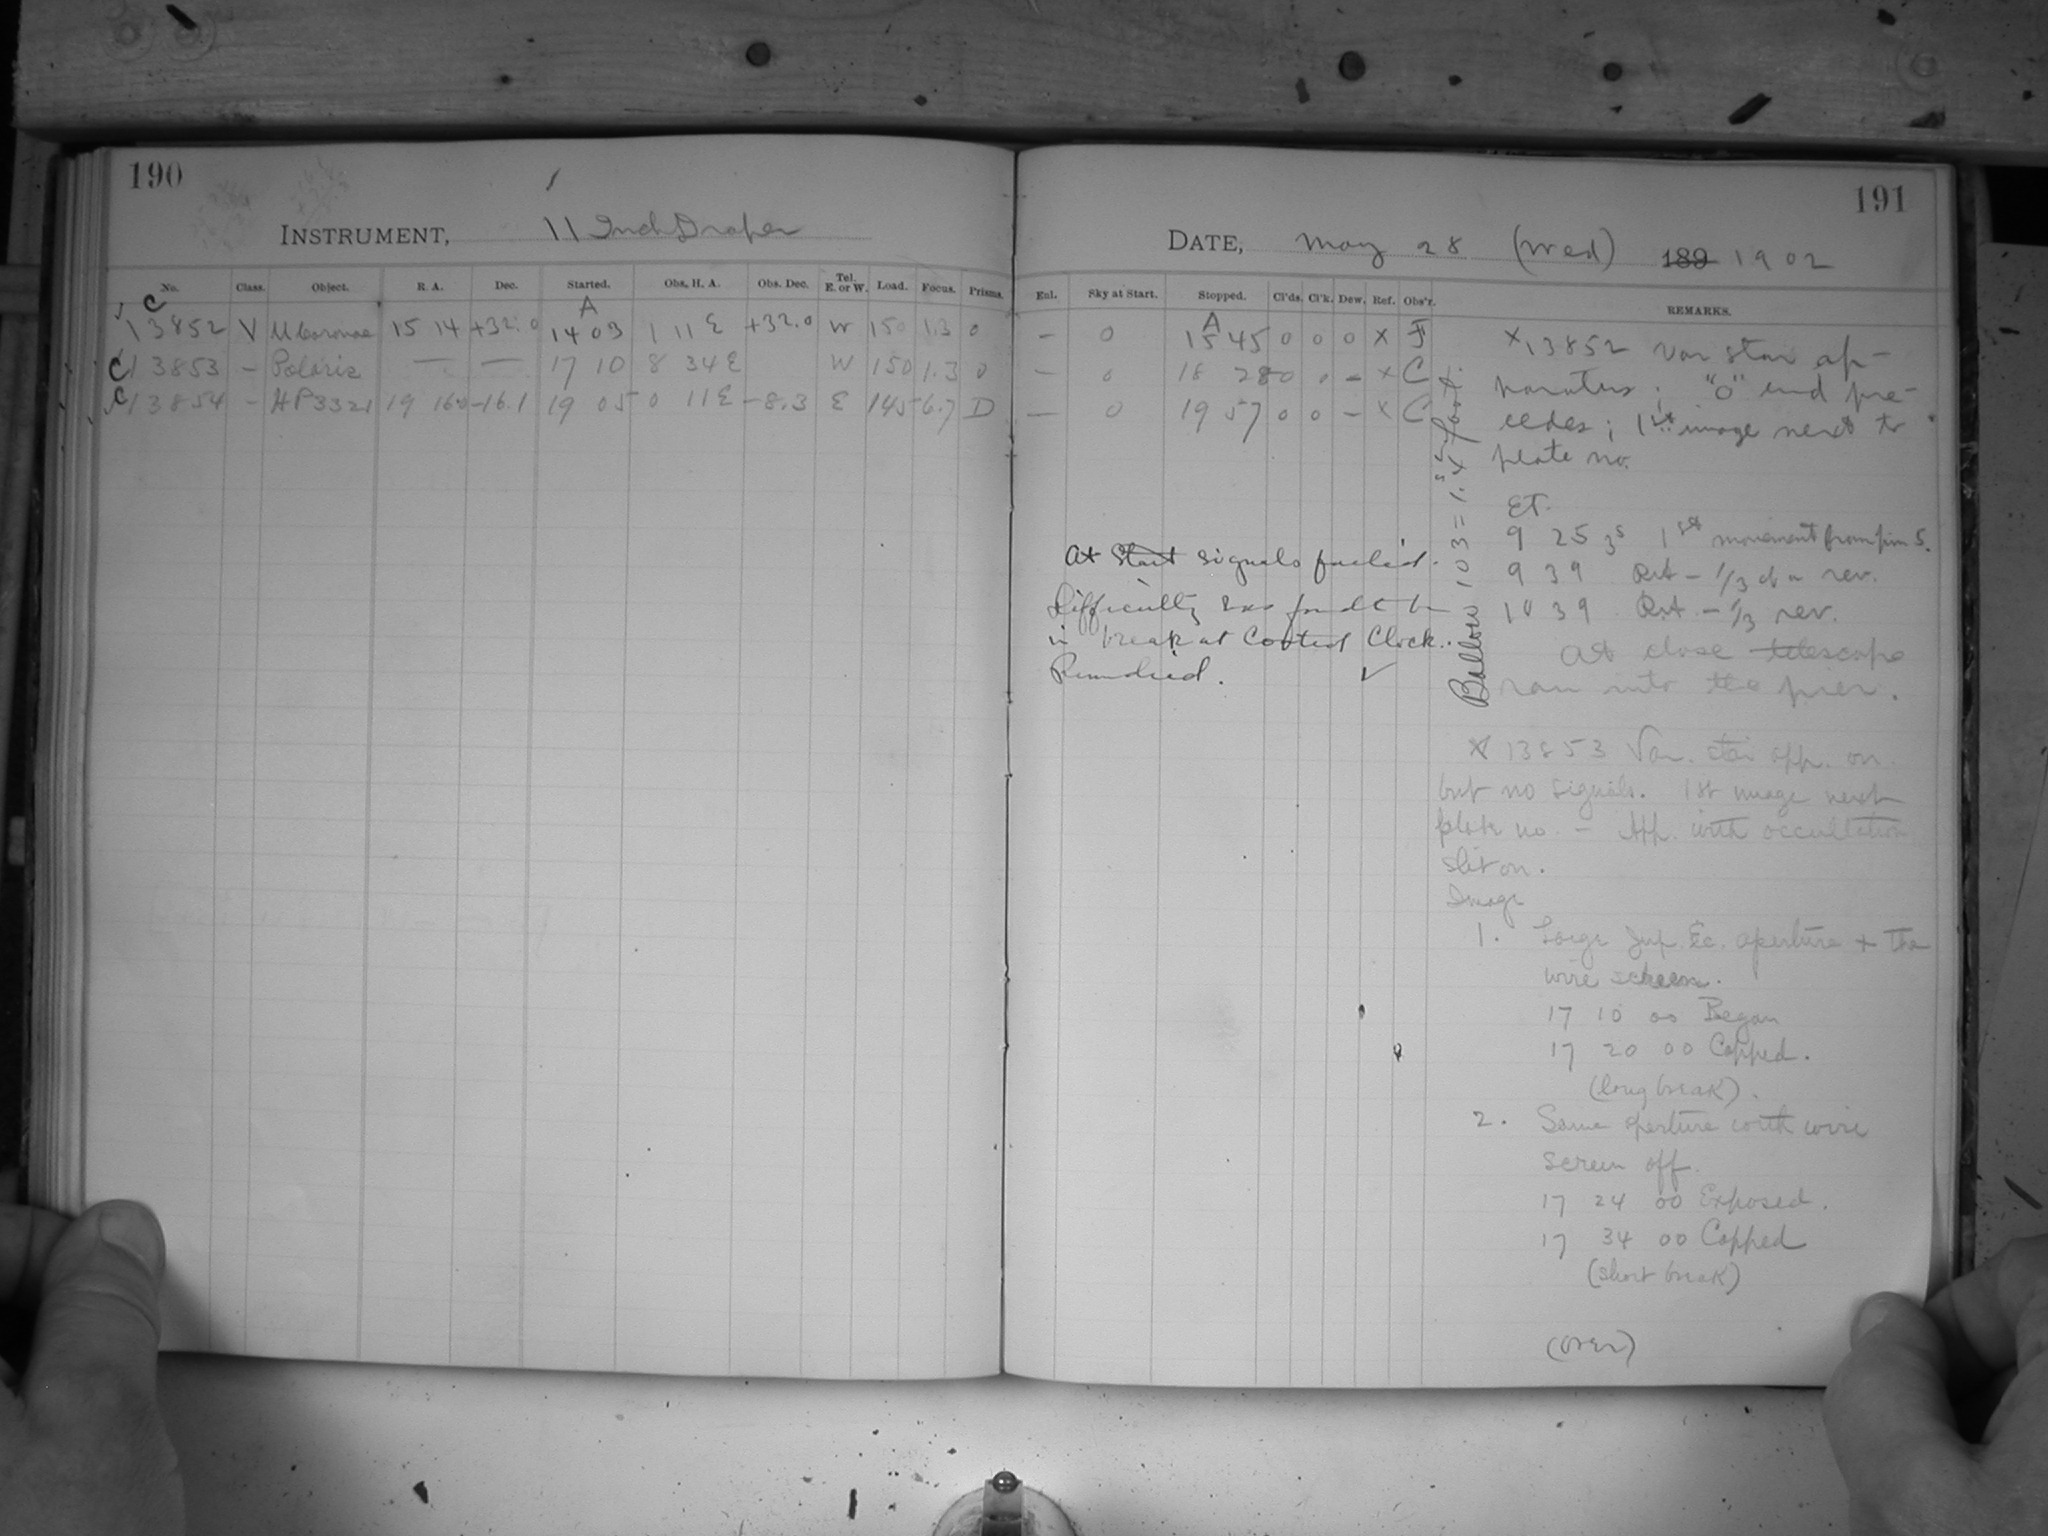 190
INSTRUMENT, 11 Inch Draper
No. Class. Object. R. A. Dec. Started. Obs. H. A. Obs. Dec. Tel. E. or W. Load. Focus. Prisms.
C A
13852 V U Coronae 15 14 +32.0 14 03 1 11 E +32.0 W 150 1.3 0
C 13853 - Polaris — — 17 10 8 34 E W 150 1.3 0
C 13854 - HP3321 19 16.0 -16.1 19 05 0 11 E -8.3 E 145 6.7 D
191
DATE, May 28 (Wed) 189 1902
Enl. Sky at Start. Stopped. Cl'ds. Cl'k. Dew. Ref. Obs'r. REMARKS.
A
— 0 15 45 0 0 0 X F
— 0 18 28 0 0 - X C
— 0 19 57 0 0 - X C
At Start signals failed.
Difficulty was found to be
in break at Control Clock.
Remedied. ✓
Ballow 103 = 1.4 fast.
X 13852 Var star ap-
paratus; "0" end pre-
cedes; 1st image next to
plate no.
ET.
9 25 3s 1st movement from pin 5.
9 39 Rot - 1/3 of a rev.
10 39 Rot - 1/3 rev.
At close telescope
ran into the pier.
X 13853 Var. star app. on
but no signals. 1st image next
plate no. - App. with occultation
slit on.
Image
1. Large Jup. Ec. aperture + the
wire screen.
17 10 00 Began
17 20 00 Capped.
(long break).
2. Same aperture with wire
screen off.
17 24 00 Exposed.
17 34 00 Capped
(short break)
(over)